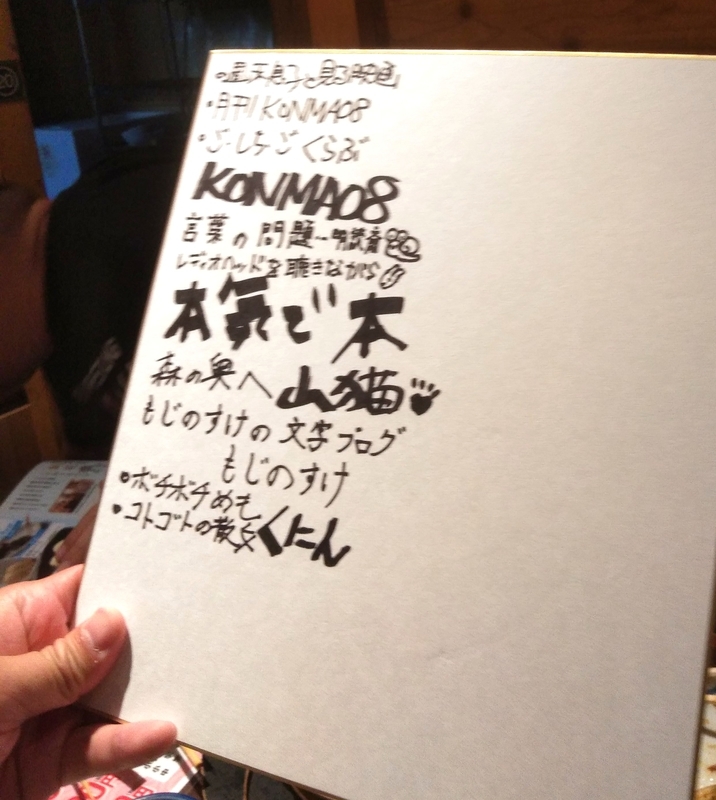 ・星天息子と見る映画
・月刊KONMA08
・ご・しちごくらぶ
KONMA08
言葉の問題
レディオヘッドを聴きながら
本気で本
森の奥へ 山猫
もじのすけの文字ブログ
もじのすけ
・ボチボチめも
・コトゴトの散文 くにん